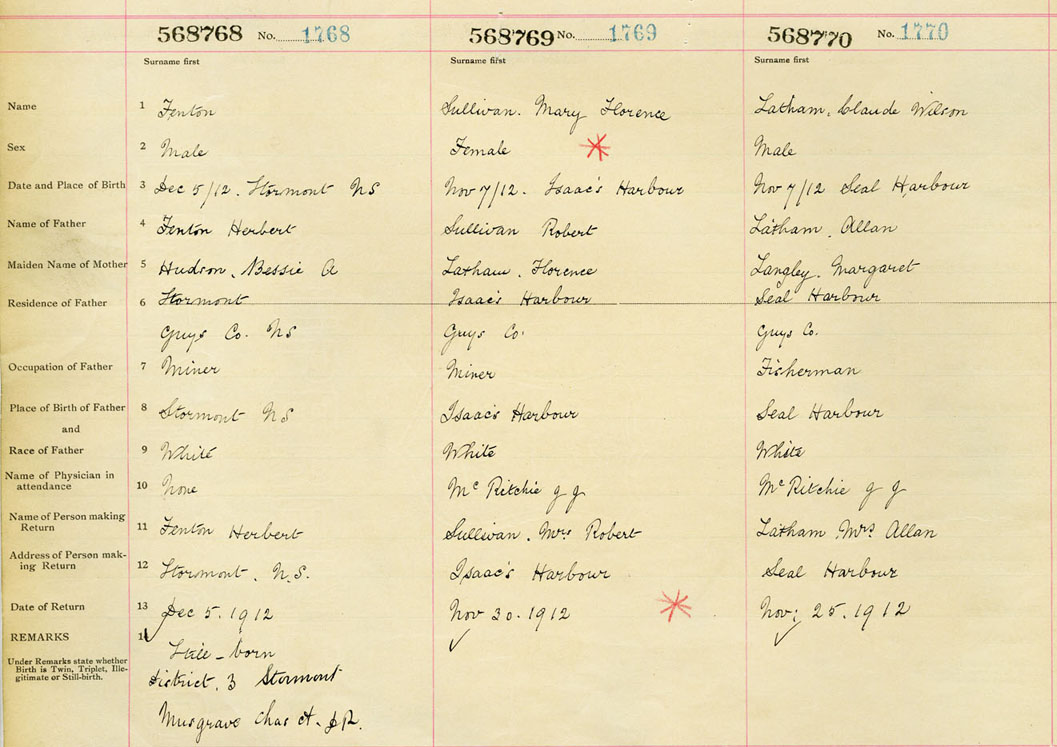 568768 No. 1768 568769 No. 1769 568770 No. 1770
Surname first Surname first Surname first
Name 1 Fenton Sullivan. Mary Florence Latham, Claude Wilson
Sex 2 Male Female Male
Date and Place of Birth 3 Dec 5/12. Stormont NS Nov 7/12. Isaac's Harbour Nov 7/12 Seal Harbour
Name of Father 4 Fenton Herbert Sullivan Robert Latham, Allan
Maiden Name of Mother 5 Hudson, Bessie A Latham, Florence Langley, Margaret
Residence of Father 6 Stormont Isaac's Harbour Seal Harbour
Guys Co. NS Guys Co. Guys Co.
Occupation of Father 7 Miner Miner Fisherman
Place of Birth of Father 8 Stormont NS Isaac's Harbour Seal Harbour
and
Race of Father 9 White White White
Name of Physician in
attendance 10 None McRitchie McRitchie
Name of Person making
Return 11 Fenton Herbert Sullivan, Mrs Robert Latham, Mrs Allan
Address of Person mak-
ing Return 12 Stormont, N.S. Isaac's Harbour Seal Harbour
Date of Return 13 Dec 5. 1912 Nov 30. 1912 Nov; 25. 1912
REMARKS
Under Remarks state whether
Birth is Twin, Triplet, Ille-
gitimate or Still-birth.
Still-born
District. 3 Stormont
Musgrave Chas